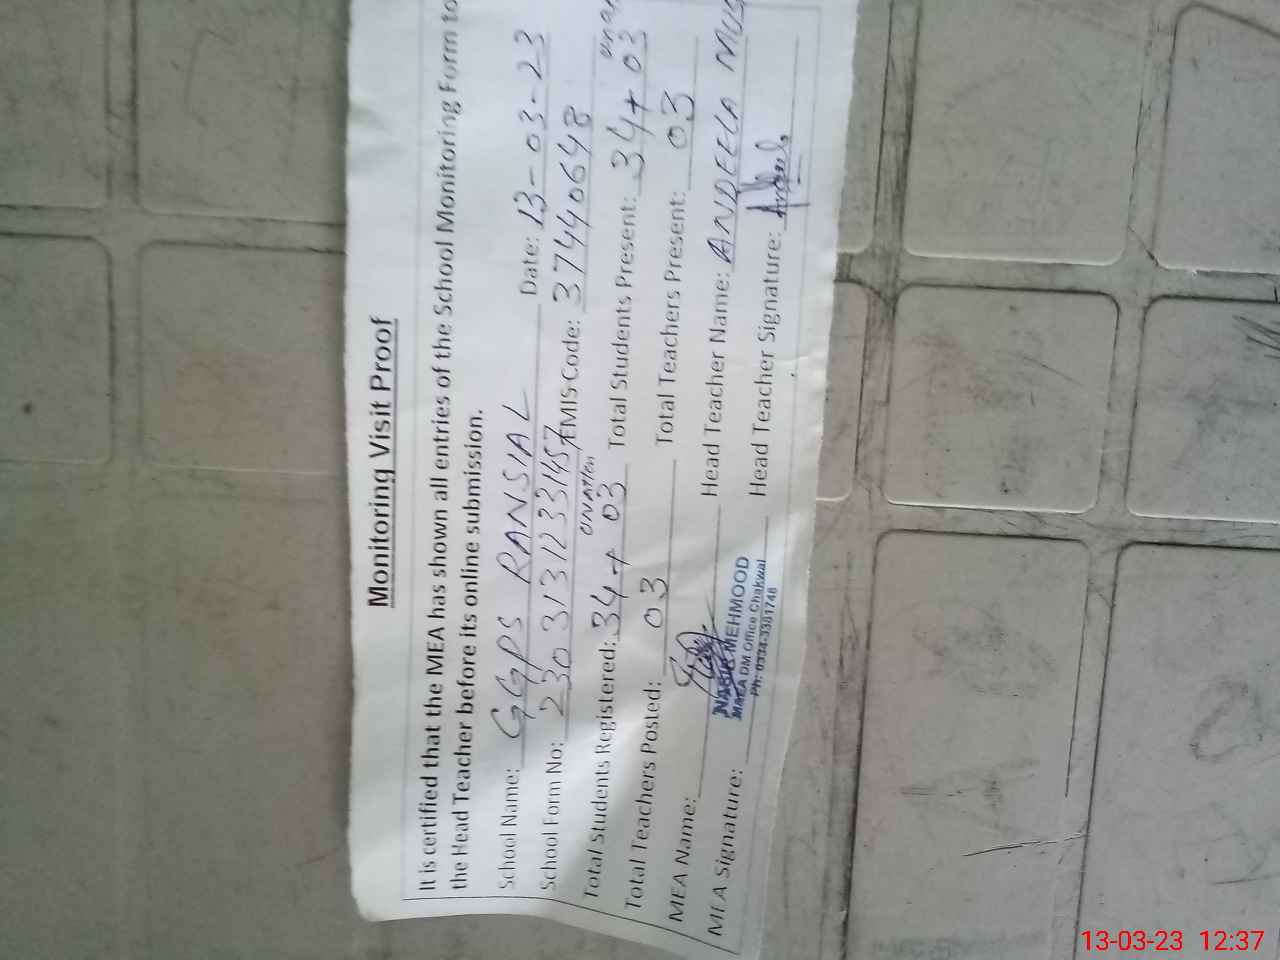 Monitoring Visit Proof
It is certified that the MEA has shown all entries of the School Monitoring Form to
the Head Teacher before its online submission.
School Name: GGPS RANSIAL Date: 13-03-23
School Form No: 23031312331457 EMIS Code: 37440648
Total Students Registered: 34 + 03 Total Students Present: 34 + 03
Total Teachers Posted: 03 Total Teachers Present: 03
MEA Name: Head Teacher Name: ANDEELA
MEA Signature: Head Teacher Signature:
MEHMOOD
MAEA DM Office Chakwal
Ph: 0334-3381748
13-03-23 12:37